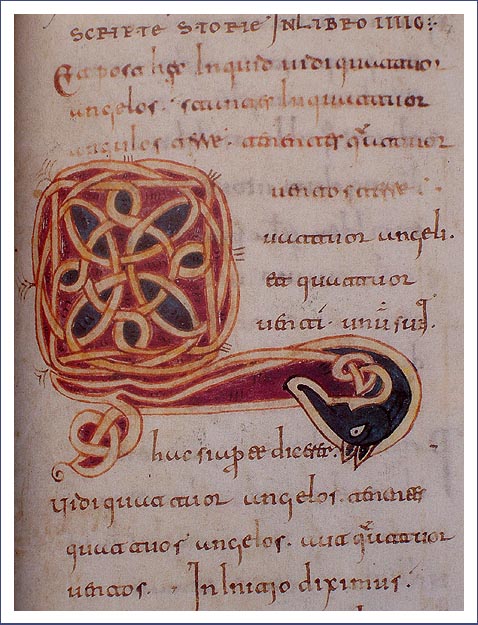 SCRIPTE STORIE IN LIBRO IIIIo
Et post hęc Inquid uidi quattuor
angelos. stantes In quattuor
angulos terre. tenentes quattuor
uentos terre.
Quattuor angeli.
et quattuor
uenti. unū sunt.
super
Uidi quattuor angelos. tenentes
quattuor angelos. quattuor
uentos. In Initio diximus.